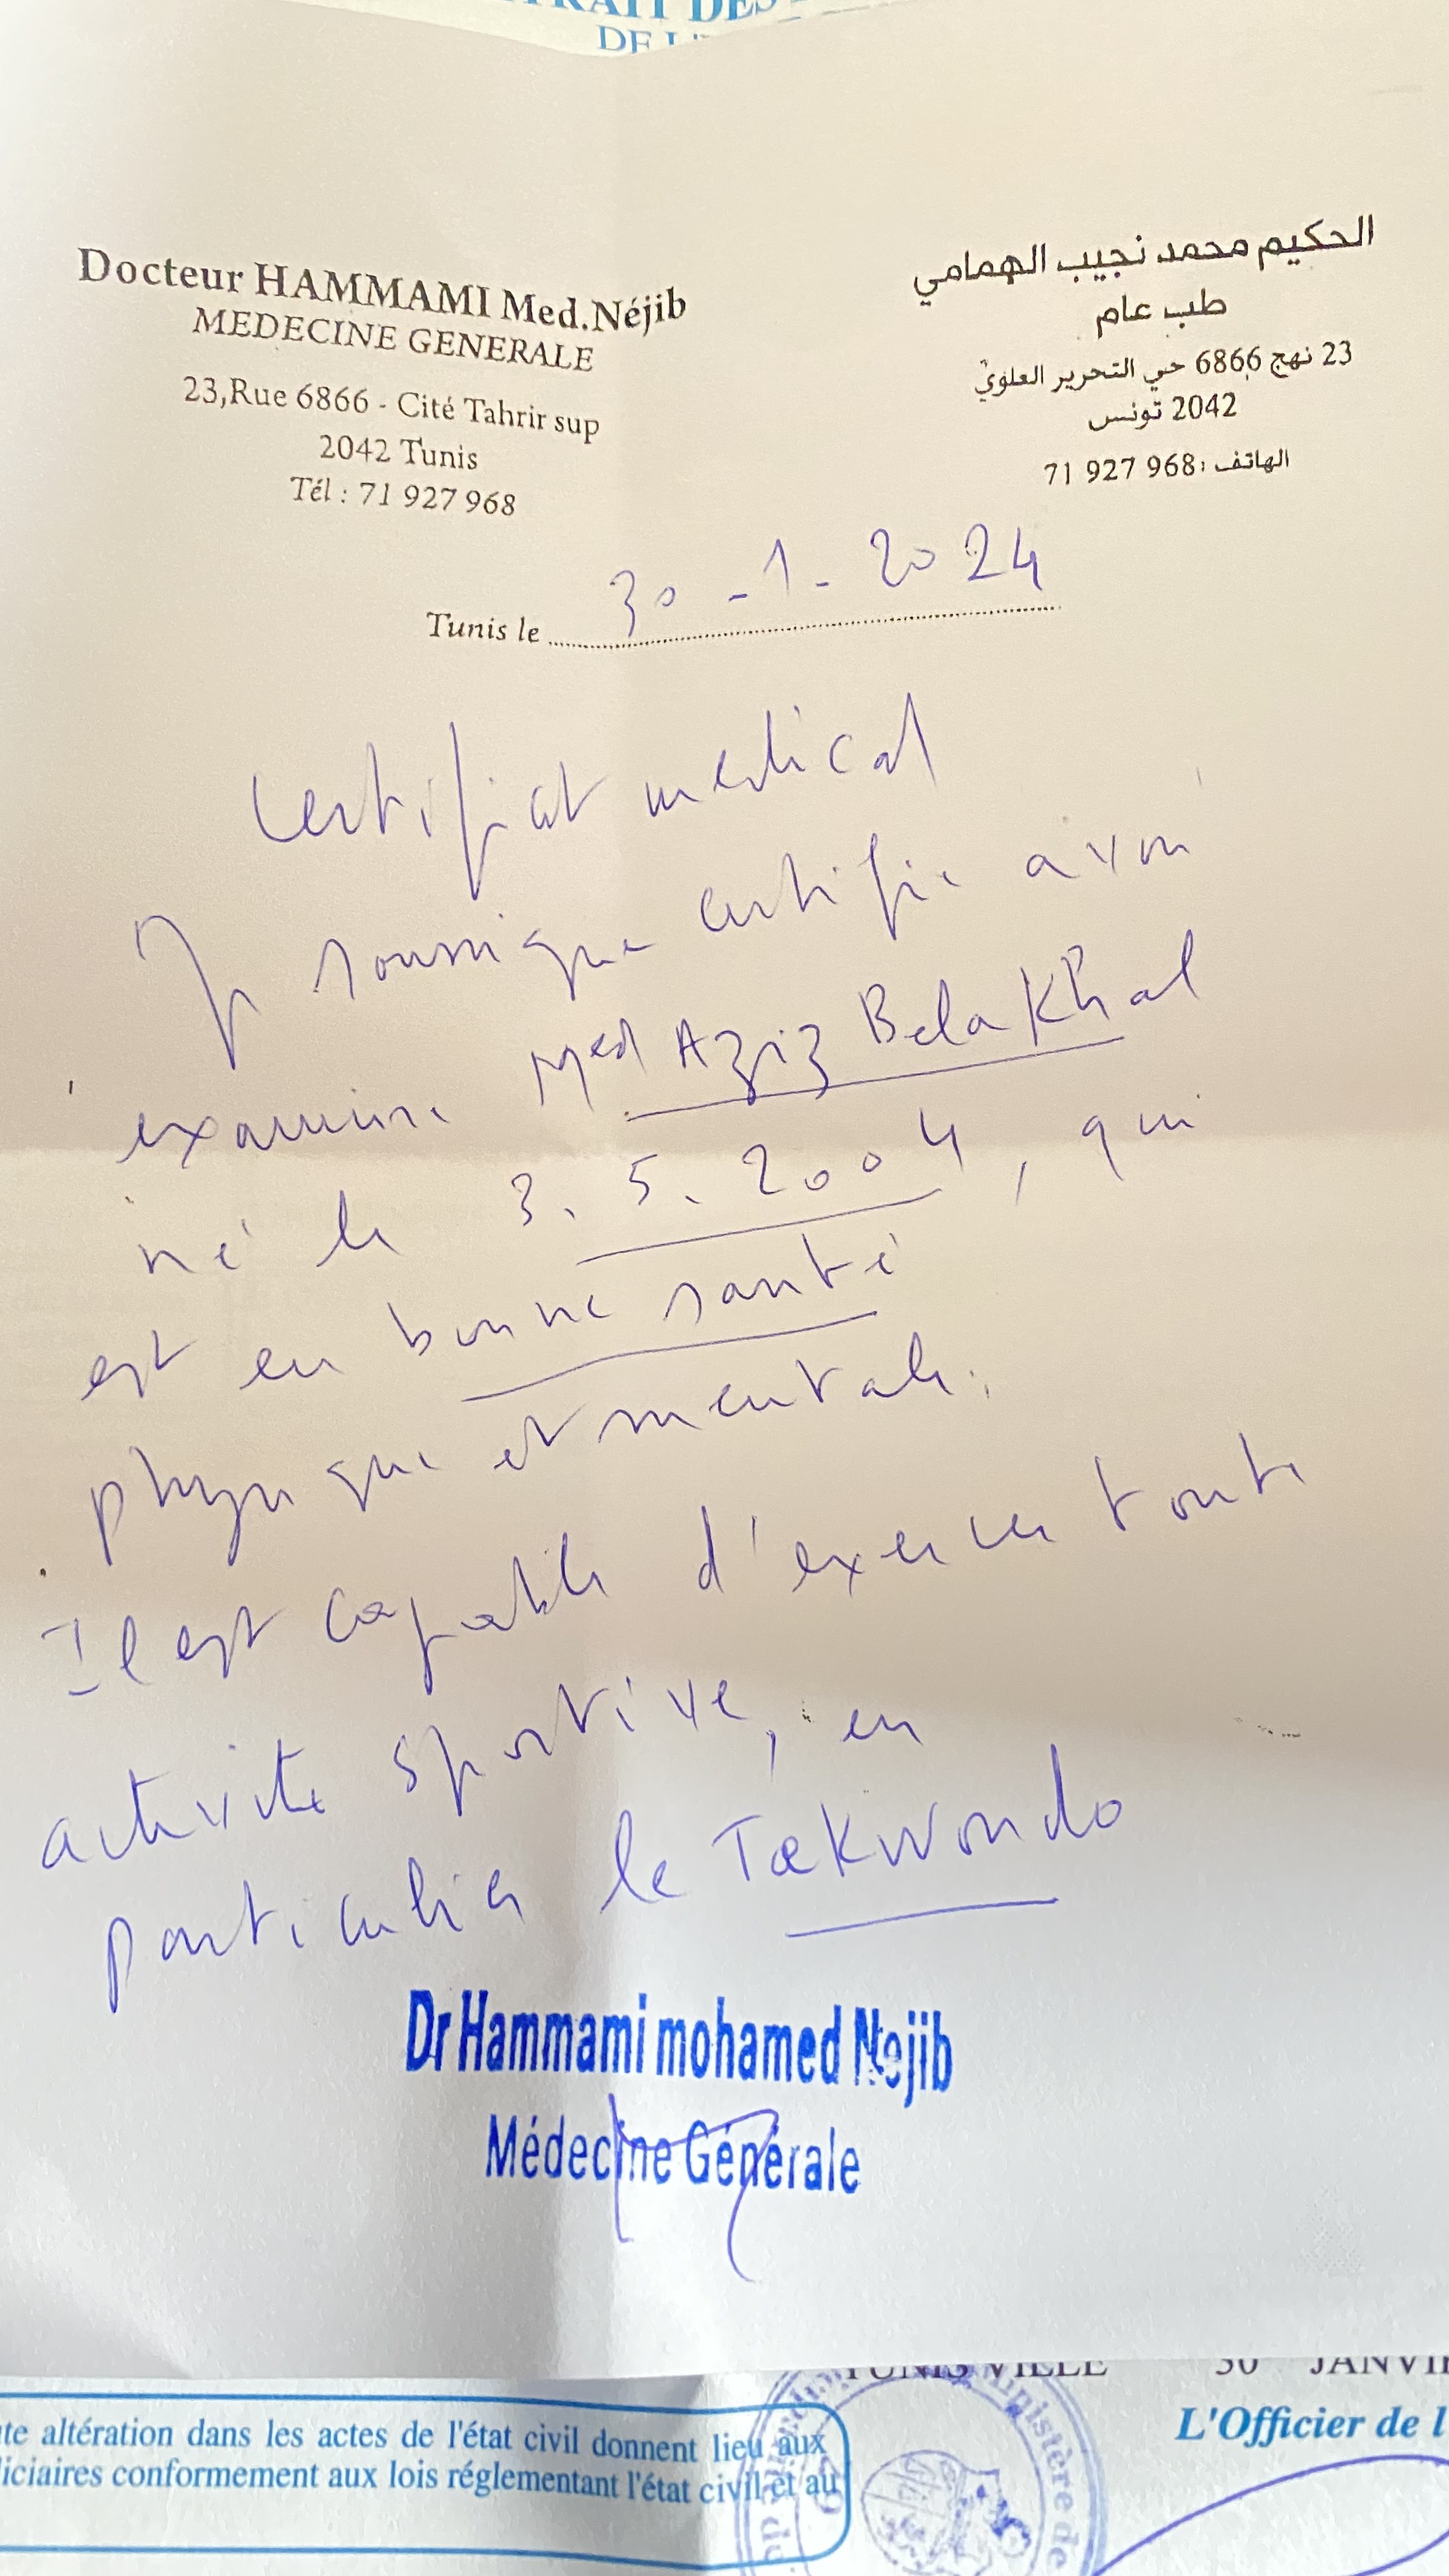 TRAIT DES
DE L'
Docteur HAMMAMI Med.Néjib
MEDECINE GENERALE
23,Rue 6866 - Cité Tahrir sup
2042 Tunis
Tél : 71 927 968
الحكيم محمد نجيب الهمامي
طب عام
23 نهج 6866 حي التحرير العلوي
2042 تونس
الهاتف : 71 927 968
Tunis le 30 - 1 - 2024
Certificat medical
Je soussigne certifie avoir
examine Med Aziz Belakhal
né le 3. 5. 2004, qui
est en bonne santé
physique et mentale.
Il est capable d'exercer toute
activite sportive, en
particulier le Taekwondo
Dr Hammami mohamed Nejib
Médecine Générale
TUNIS VILLE 30 JANVI
te altération dans les actes de l'état civil donnent lieu aux
iciaires conformement aux lois réglementant l'état civil et au
L'Officier de l
nistère de